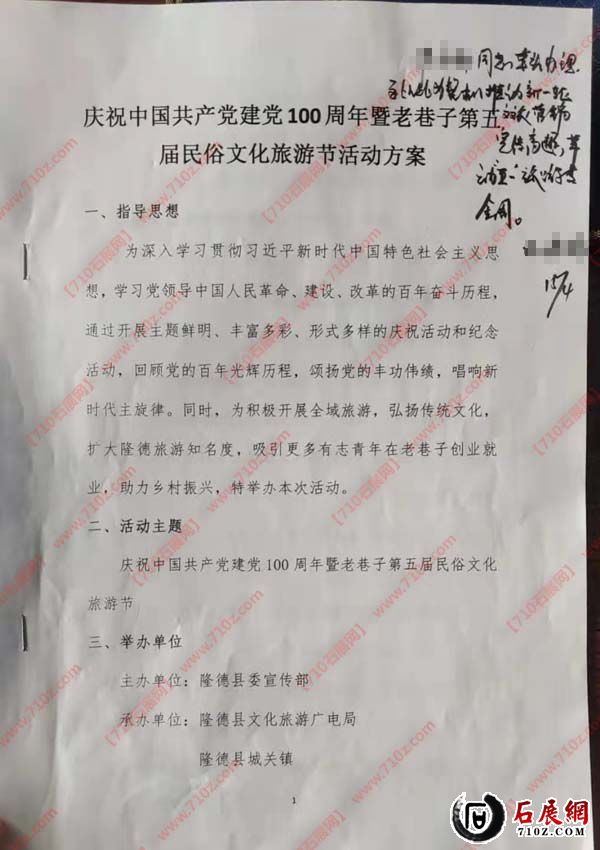 同志牵头办理
庆祝中国共产党建党100周年暨老巷子第五
届民俗文化旅游节活动方案
全周。
15/4
一、指导思想
为深入学习贯彻习近平新时代中国特色社会主义思
想，学习党领导中国人民革命、建设、改革的百年奋斗历程，
通过开展主题鲜明、丰富多彩、形式多样的庆祝活动和纪念
活动，回顾党的百年光辉历程，颂扬党的丰功伟绩，唱响新
时代主旋律。同时，为积极开展全域旅游，弘扬传统文化，
扩大隆德旅游知名度，吸引更多有志青年在老巷子创业就
业，助力乡村振兴，特举办本次活动。
二、活动主题
庆祝中国共产党建党100周年暨老巷子第五届民俗文化
旅游节
三、举办单位
主办单位：隆德县委宣传部
承办单位：隆德县文化旅游广电局
隆德县城关镇
1
【710石展网】
www.710z.com
石展網
710Z.COM